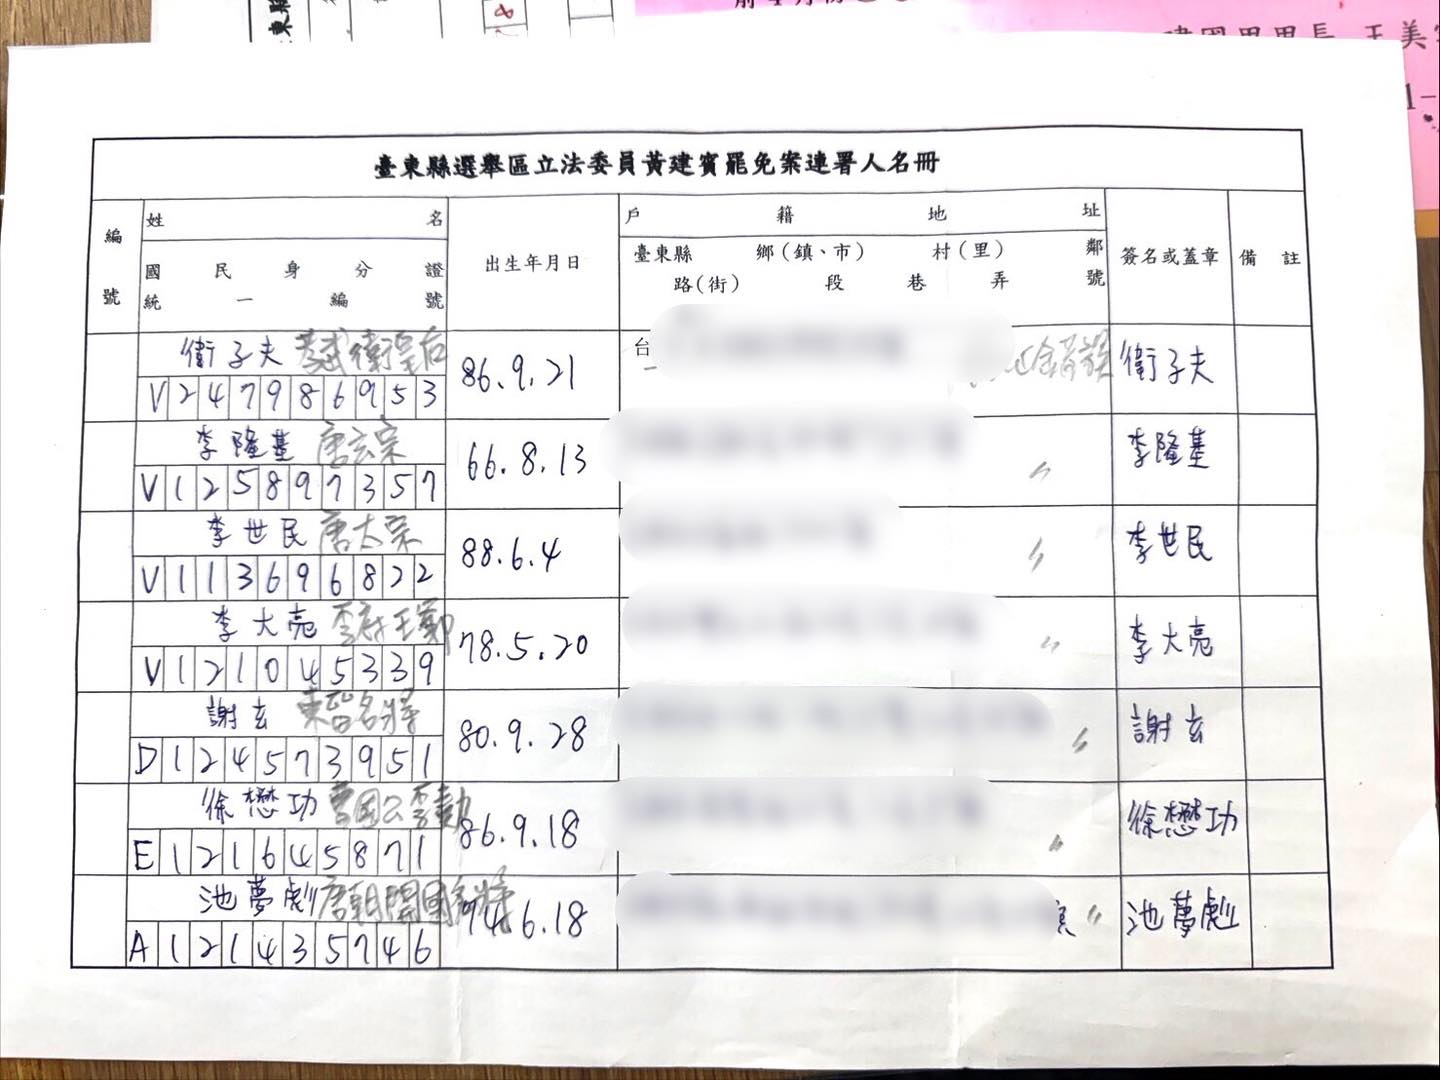 臺東縣選舉區立法委員黃建賓罷免案連署人名冊
編號
姓名
國民身分證
統一編號
出生年月日
戶籍地址
臺東縣 鄉(鎮、市) 村(里) 鄰
路(街) 段 巷 弄 號
簽名或蓋章
備註
衛子夫 孝武衛皇后
V247986953
86.9.21
台
衛子夫
李隆基 唐玄宗
V125897357
66.8.13
〃
李隆基
李世民 唐太宗
V113696822
88.6.4
〃
李世民
李大亮
V121045339
78.5.20
〃
李大亮
謝玄 東晉名將
D124573951
80.9.28
〃
謝玄
徐懋功 李勣
E121645871
86.9.18
〃
徐懋功
池夢彪 唐朝開國名將
A121435746
94.6.18
〃
池夢彪